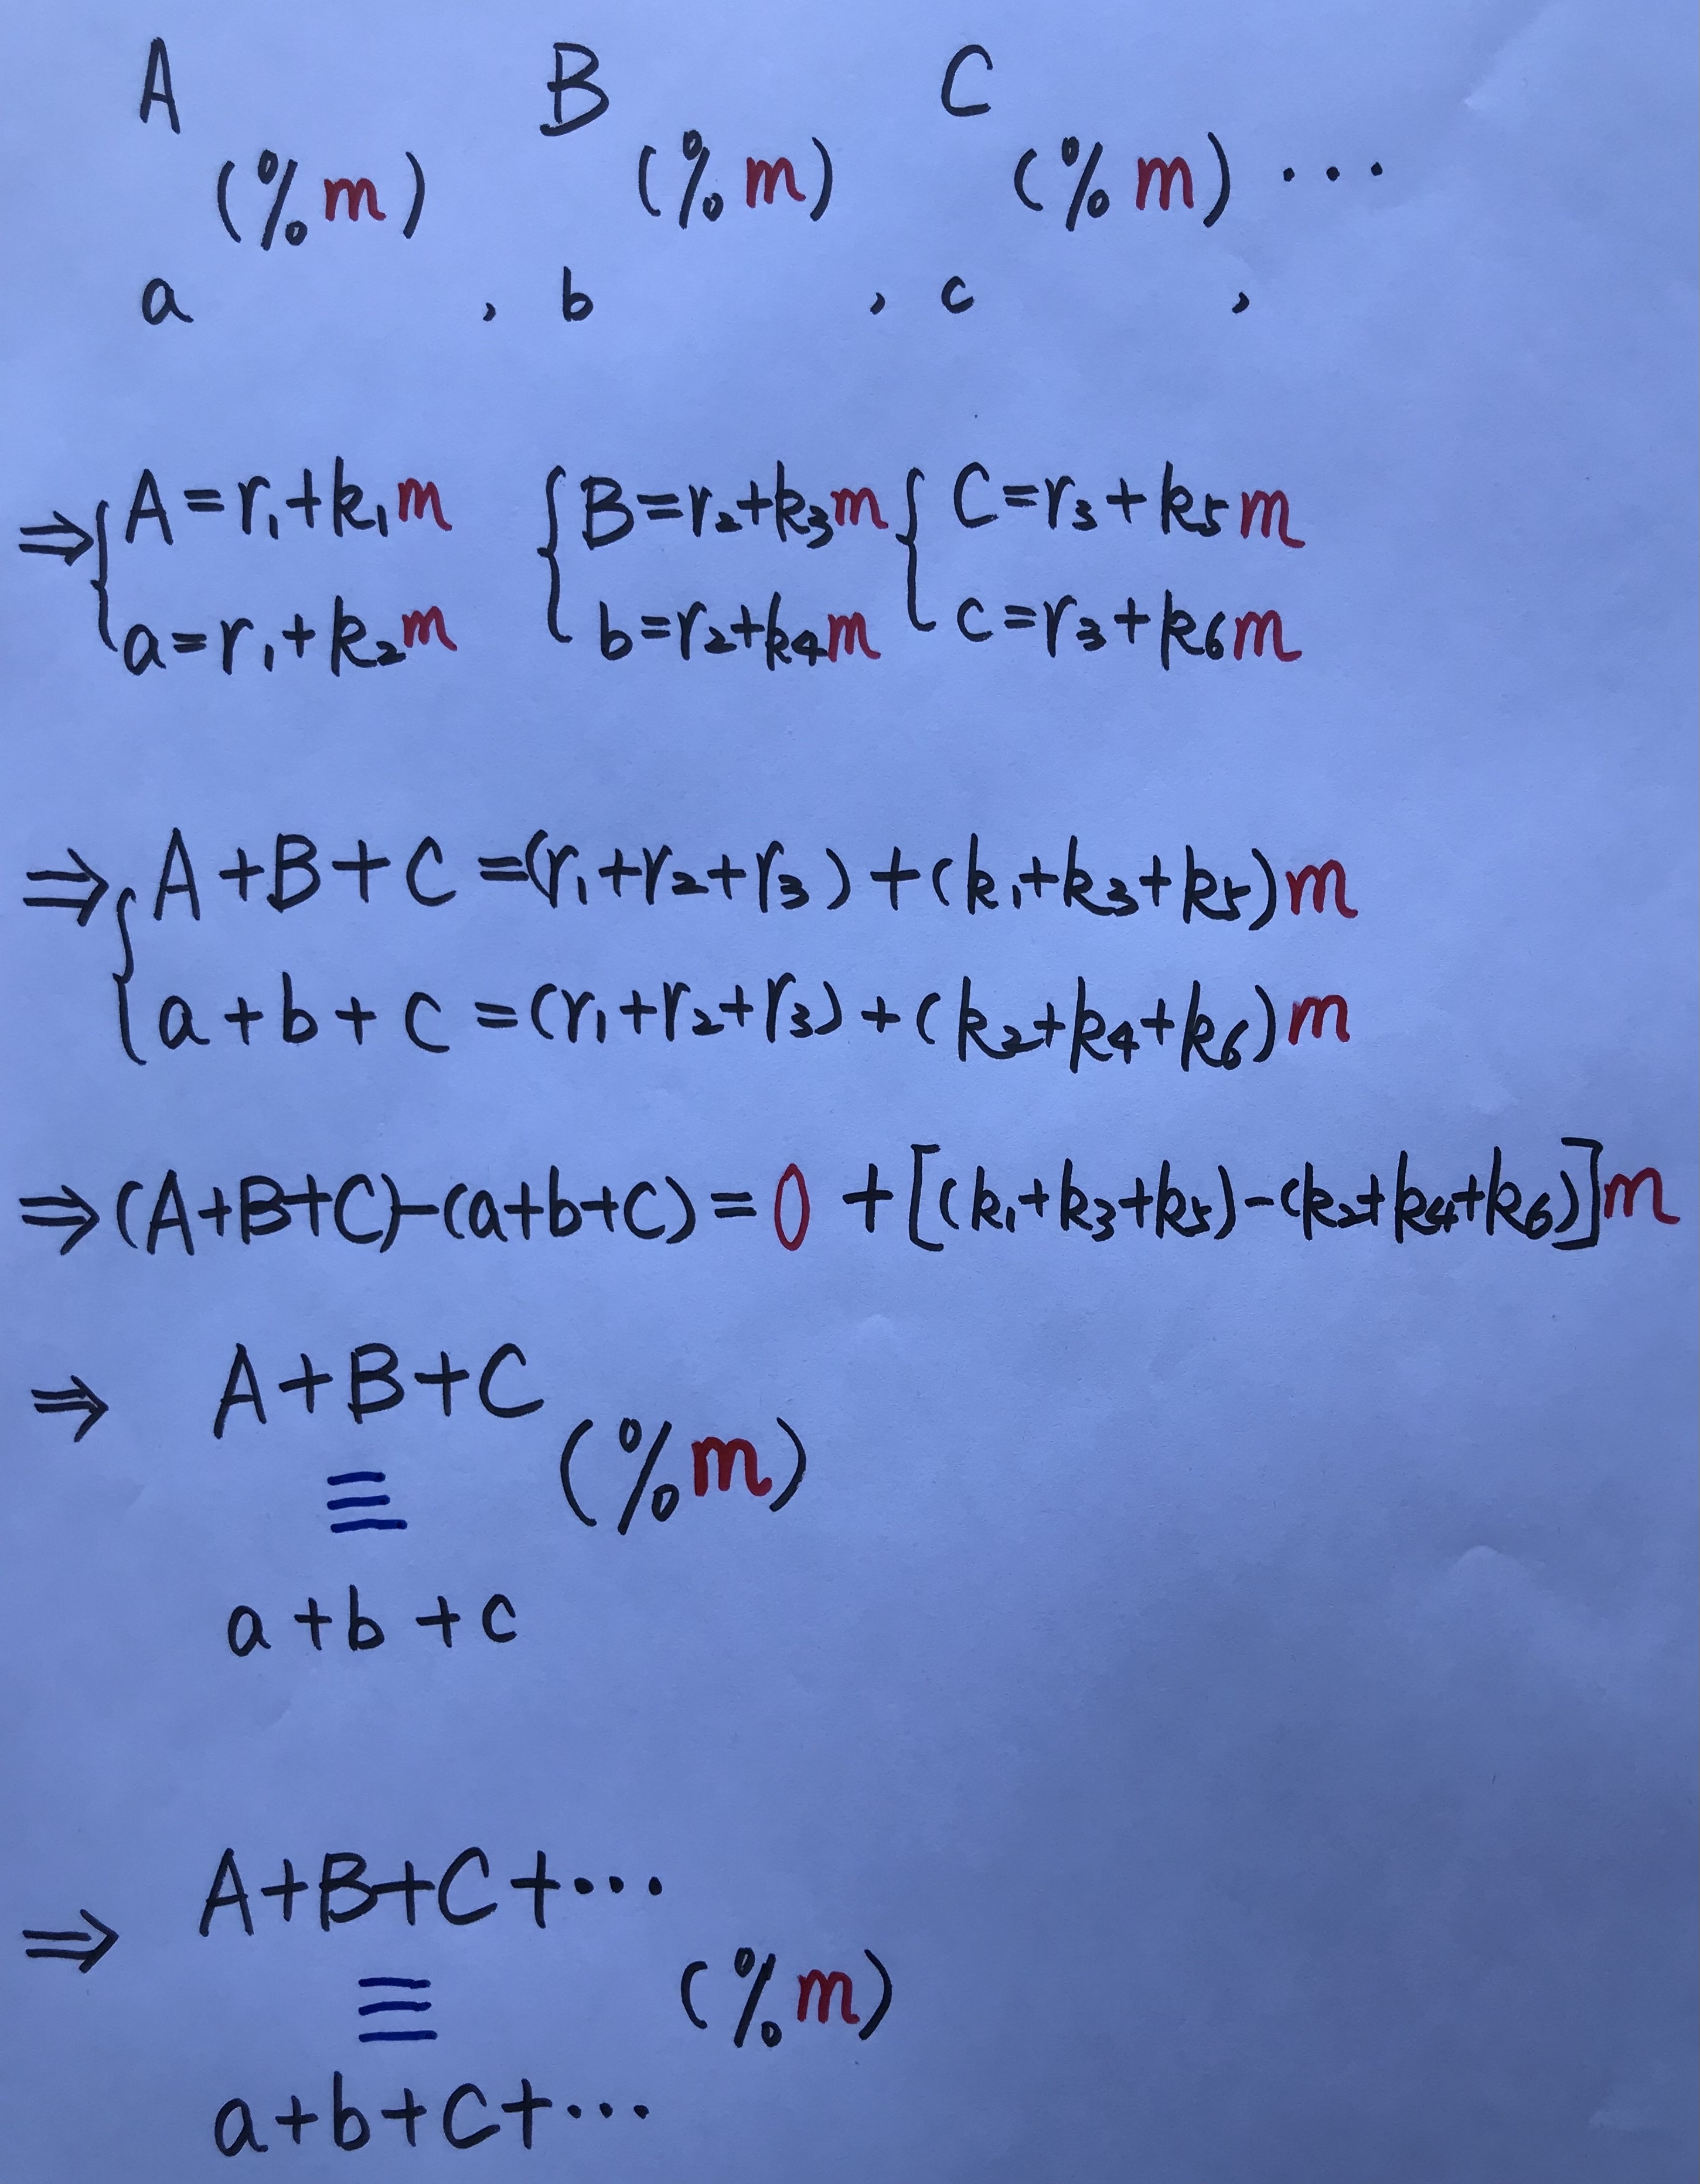 A B C
(%m) (%m) (%m) ...
a , b , c ,
⇒ { A=r₁+k₁m { B=r₂+k₃m { C=r₃+k₅m
a=r₁+k₂m b=r₂+k₄m c=r₃+k₆m
⇒ { A+B+C=(r₁+r₂+r₃)+(k₁+k₃+k₅)m
a+b+c=(r₁+r₂+r₃)+(k₂+k₄+k₆)m
⇒(A+B+C)-(a+b+c)=0+[(k₁+k₃+k₅)-(k₂+k₄+k₆)]m
⇒ A+B+C
≡ (%m)
a+b+c
⇒ A+B+C+...
≡ (%m)
a+b+c+...